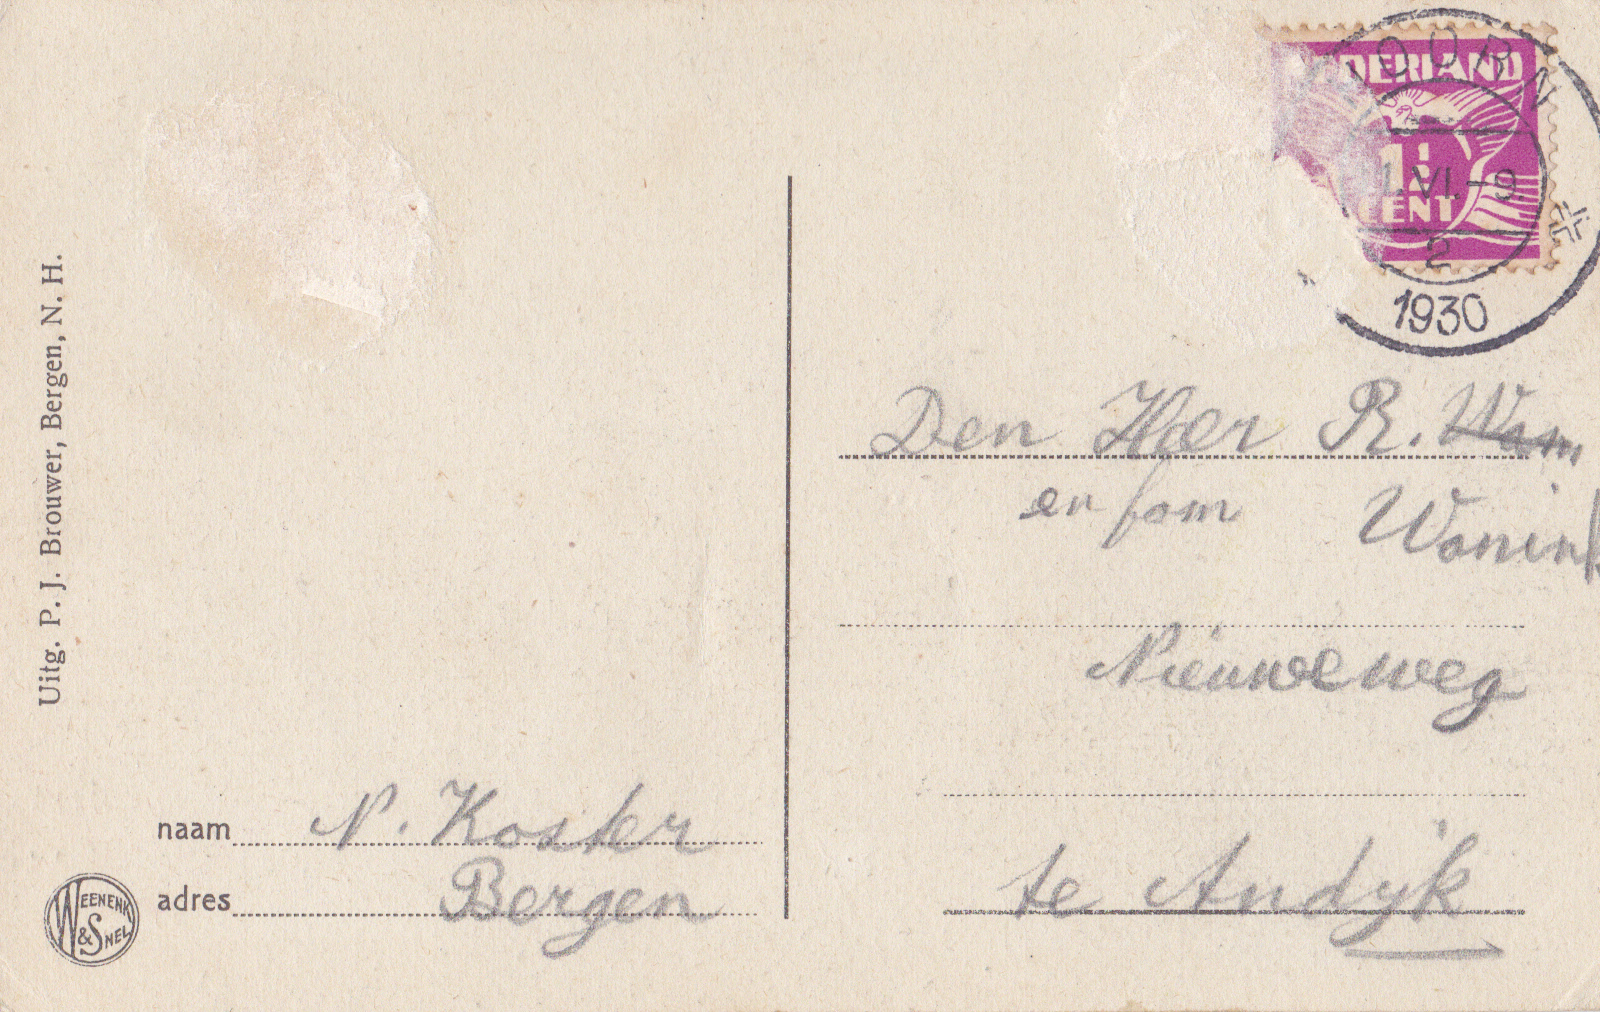 Uitg. P. J. Brouwer, Bergen, N. H.
NEDERLAND
1½
CENT
HOORN
1.VI.-9
2
1930
Den Heer R. Won
en fam Wonink
Nieuweweg
te Andijk
naam N. Koster
adres Bergen
WEENENK
& SNEL